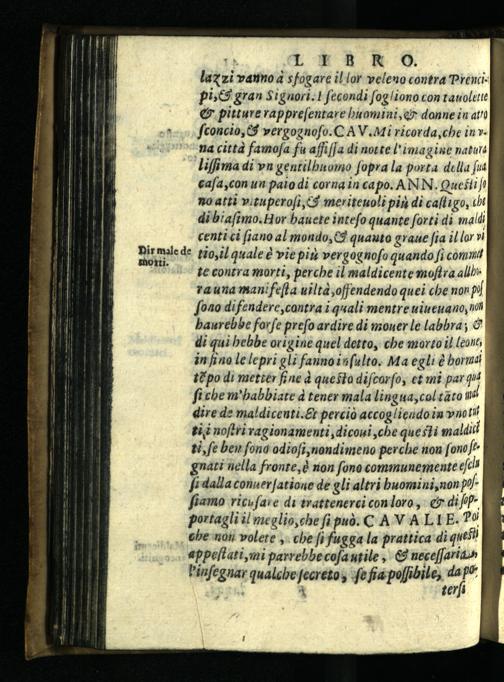 LIBRO.
lazzi vanno à sfogare il lor veleno contra Prenci-
pi, & gran Signori. I secondi sogliono con tauolette
& pitture rappresentare huomini, & donne in atto
sconcio, & vergognoso. CAV. Mi ricorda, che in v-
na città famosa fu affissa di notte l'imagine natura
lissima di vn gentilhuomo sopra la porta della sua
casa, con un paio di corna in capo. ANN. Questi so
no atti vituperosi, & meriteuoli più di castigo, che
di biasimo. Hor hauete inteso quante sorti di maldi
centi ci siano al mondo, & quanto graue sia il lor vi
Dir male de
morti.
tio, il quale è vie più vergognoso quando si commet
te contra morti, perche il maldicente mostra allho-
ra una manifesta uiltà, offendendo quei che non pos
sono difendere, contra i quali mentre uiueuano, non
haurebbe forse preso ardire di mouer le labbra; &
di qui hebbe origine quel detto, che morto il leone,
in fino le lepri gli fanno insulto. Ma egli è hormai
tẽpo di metter fine à questo discorso, et mi par qua
si che m'habbiate à tener mala lingua, col tãto mal
dire de maldicenti. Et perciò accogliendo in vno tut
ti, i nostri ragionamenti, dicoui, che questi maldicẽ
ti, se ben sono odiosi, nondimeno perche non sono se-
gnati nella fronte, è non sono communemente esclu
si dalla conuersatione de gli altri huomini, non pos-
siamo ricusare di trattenerci con loro, & di sop-
portagli il meglio, che si può. CAVALIE. Poi
che non volete, che si fugga la prattica di questi
appestati, mi parrebbe cosa utile, & necessaria
l'insegnar qualche secreto, se fia possibile, da po-
tersi